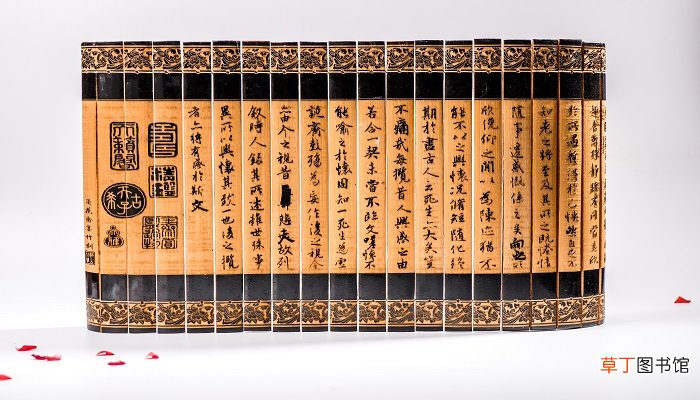 趣舍萬殊靜躁不同當其欣
於所遇蹔得於己快然自足不
知老之將至及其所之既惓情
隨事遷感慨係之矣向之所
欣俛仰之間以為陳迹猶不
能不以之興懷況脩短隨化終
期於盡古人云死生亦大矣豈
不痛哉每攬昔人興感之由
若合一契未嘗不臨文嗟悼不
能喻之於懷固知一死生為虛
誕齊彭殤為妄作後之視今
亦由今之視昔悲夫故列
敘時人錄其所述雖世殊事
異所以興懷其致一也後之攬
者亦將有感於斯文
草丁图书馆